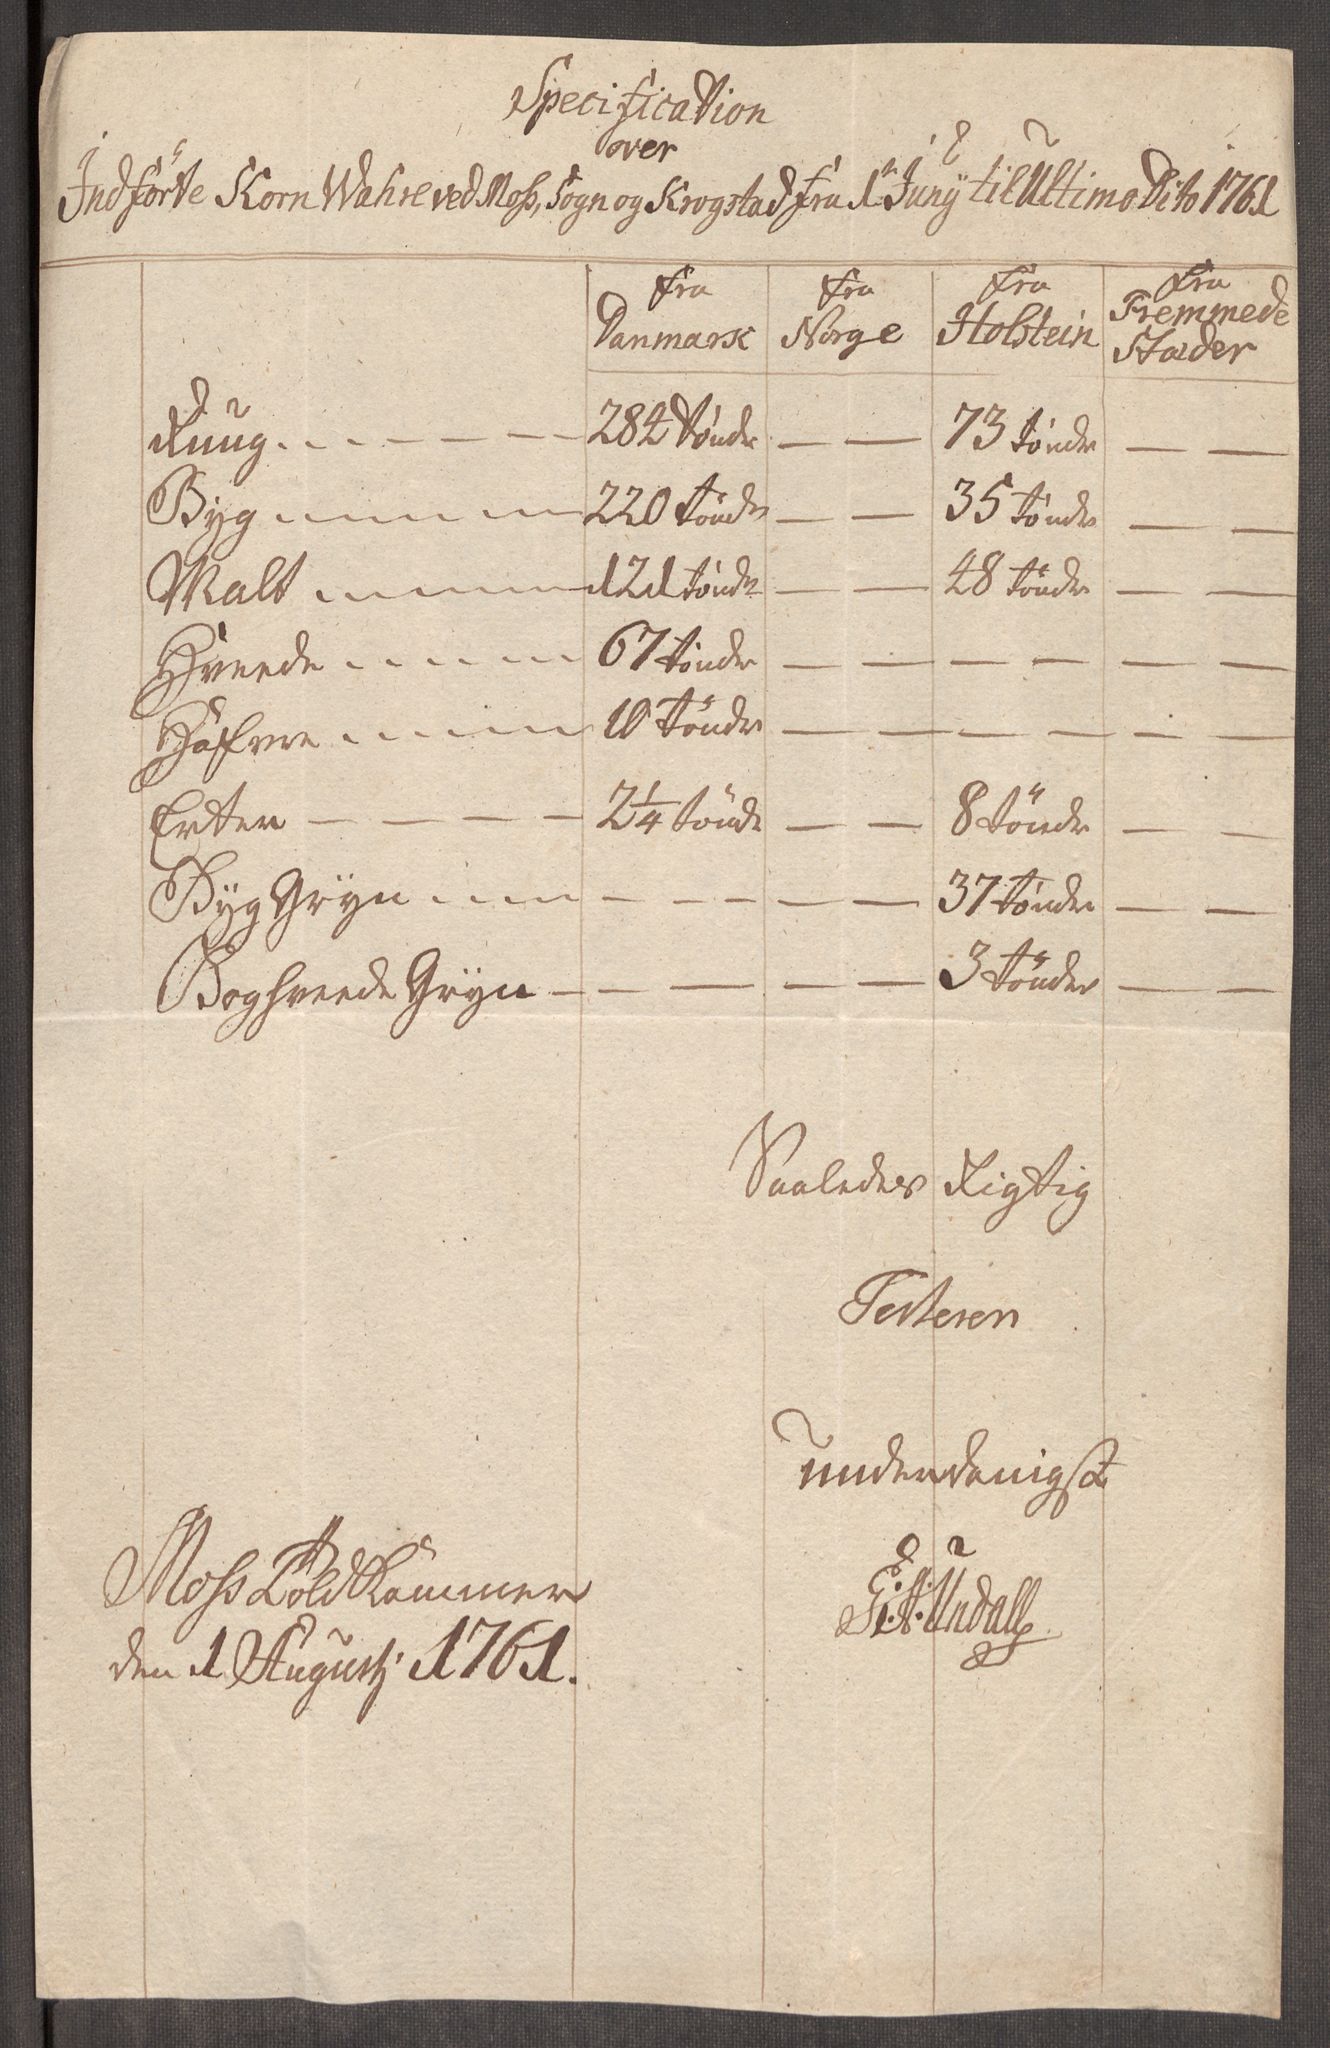 Specification
over
Indförte Korn Wahre ved Moss, Sogn og Krogstad fra 1te Juny til Ultimo Dito 1761
fra Danmark | fra Norge | fra Holstein | fra Fremmede Stæder
Ruug . . — — — — 284 Tönder — — 73 Tönder — —
Byg — — — — 220 Tönder — — 35 Tönder — —
Malt — — — — 121 Tönder — — 48 Tönder — —
Hveede — — — — 67 Tönder — — — — — —
Hafvre — — — — 10 Tönder — — — — — —
Erter — — — — 2 1/4 Tönde — — 8 Tönder — —
Byg Gryn — — — — — — — — 37 Tönder — —
Boghveede Gryn — — — — — 3 Tönder — —
Saaledes Rigtig
Testerer
underdanigst
Moss Told Kammer
den 1 Augustj 1761.
Undall